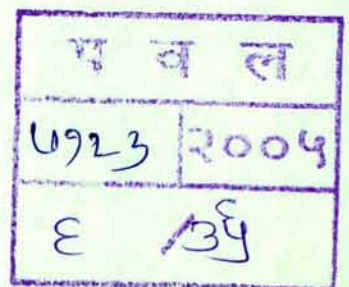 प व ल
५१२३ २००५
६ /